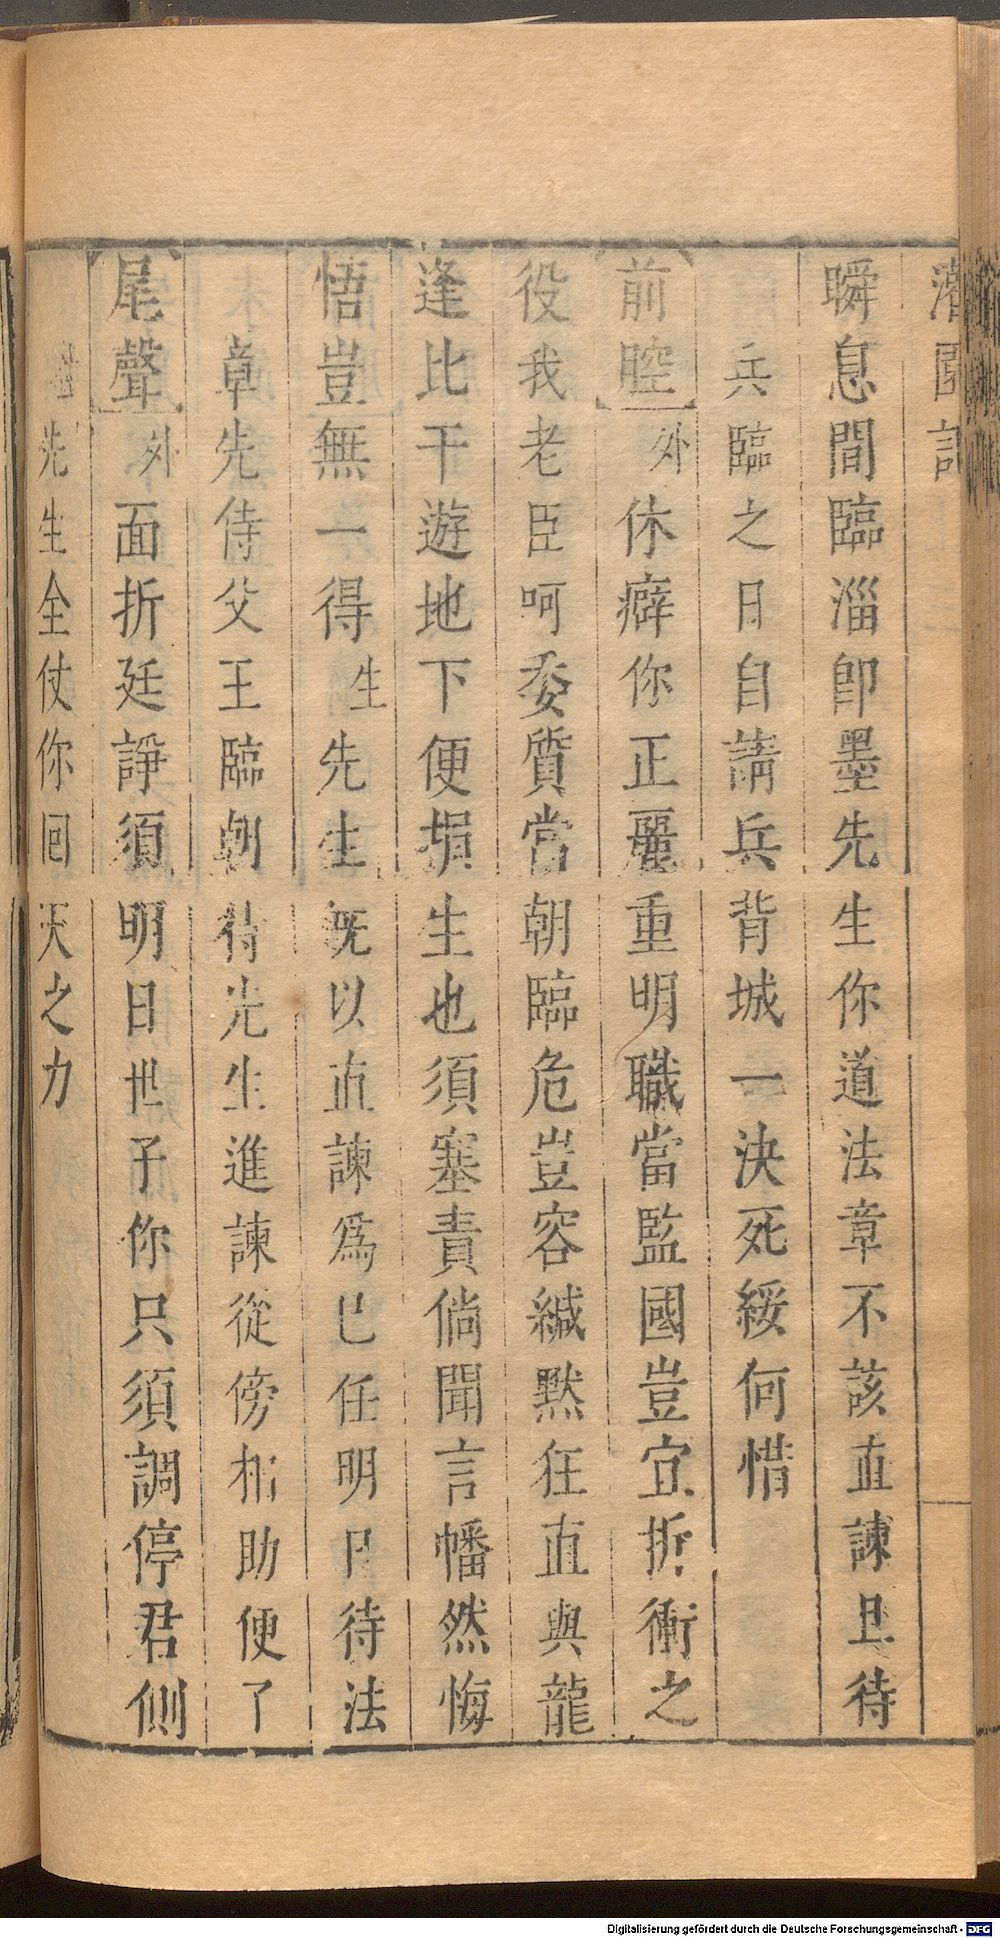 灌園記
瞬息間臨淄卽墨先生你道法章不該直諫且待
兵臨之日自請兵背城一決死綏何惜
前腔外休癖你正麗重明職當監國豈宜折衝之
役我老臣呵委質當朝臨危豈容緘默狂直與龍
逢比干遊地下便捐生也須塞責倘聞言幡然悔
悟豈無一得生先生旣以直諫爲已任明日待法
章先侍父王臨朝待先生進諫從傍相助便了
尾聲外面折廷諍須明日世子你只須調停君側
先生全仗你回天之力
Digitalisierung gefördert durch die Deutsche Forschungsgemeinschaft - DFG